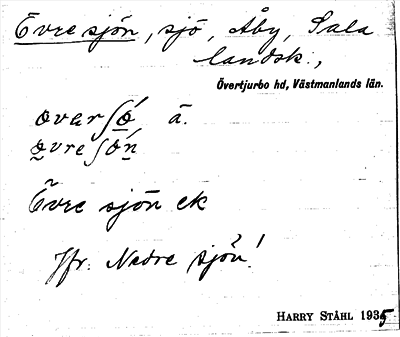 Övre sjön, sjö, Åby, Sala
landsk.,
Övertjurbo hd, Västmanlands län.
övre sjön ek
Jfr. Nedre sjön!
HARRY STÅHL 1935